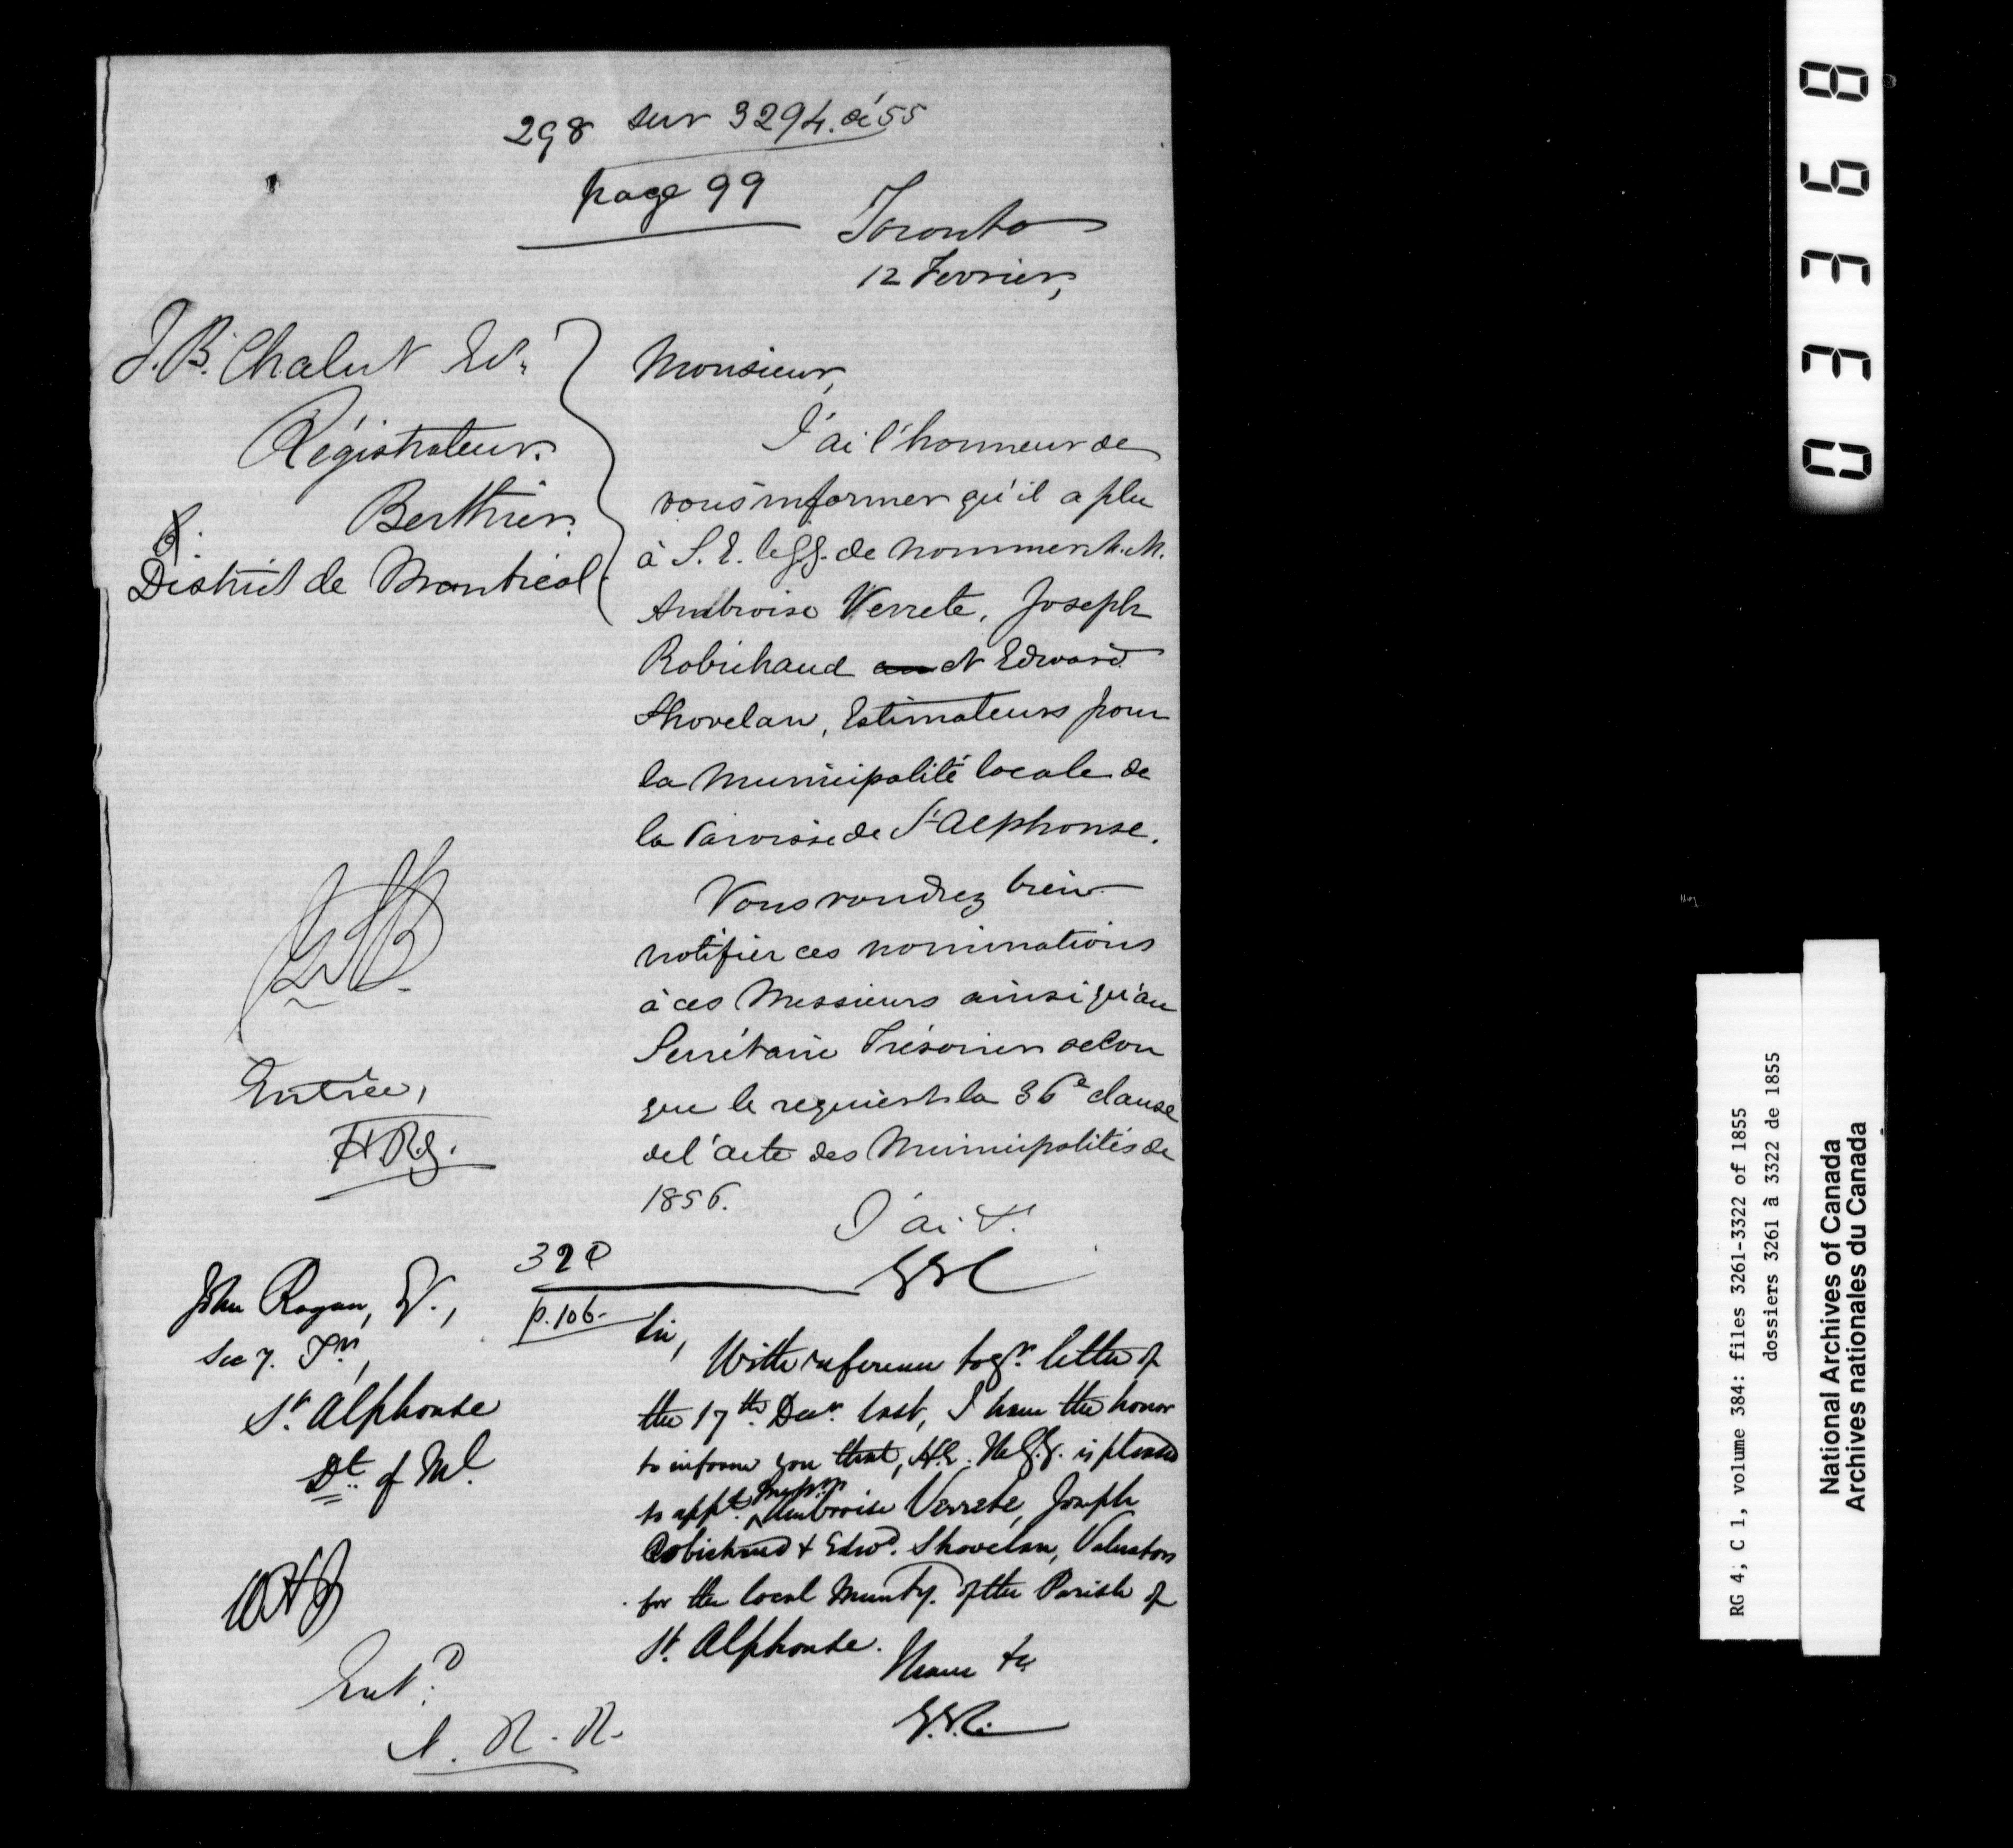 298 sur 3294. de 55
page 99
Toronto
12 Fevrier,
J. B. Chalut Er.
Régistrateur.
Berthier.
District de Montréal.
Monsieur,
J'ai l'honneur de
vous informer qu'il a plu
à S. E. le G. G. de nommer M. M.
Ambroise Verrete, Joseph
Robichaud et Edward
Shovelan, Estimateurs pour
la Municipalité locale de
la Paroisse de St Alphonse.
Vous voudrez bien
notifier ces nominations
à ces Messieurs ainsi qu'au
Secrétaire Trésorier selon
que le requiert la 36e clause
de l'acte des Municipalités de
1856.
J'ai &.
Entrée,
John Rogan, Er.,
Secy. Tr.,
St. Alphonse
Dt. of Ml.
p. 106.
Sir,
With reference to yr. letter of
the 17th. Decr. last, I have the honor
to inform you that, H.E. the G.G. is pleased
to appt. Messrs. Ambroise Verrete, Joseph
Robichaud & Edwd. Shovelan, Valuators
for the local Munty. of the Parish of
St. Alphonse.
I have &c
Entd.
03368
RG 4, C 1, volume 384: files 3261-3322 of 1855
dossiers 3261 à 3322 de 1855
National Archives of Canada
Archives nationales du Canada